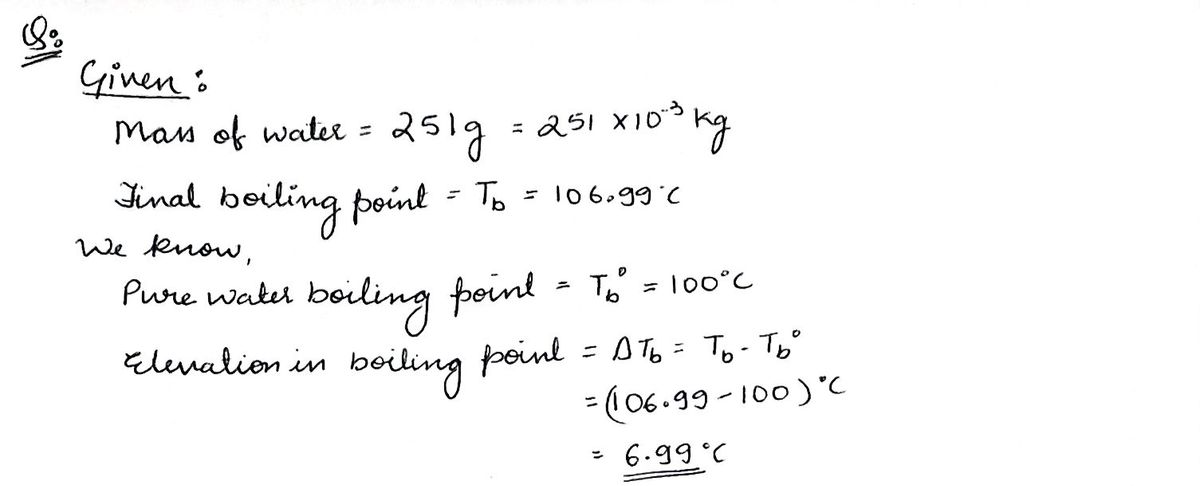 Q:
Given :
Mass of water = 251g = 251 ×10⁻³ kg
Final boiling point = Tb = 106.99°C
We know,
Pure water boiling point = Tb° = 100°C
Elevation in boiling point = ΔTb = Tb - Tb°
= (106.99 - 100)°C
= 6.99°C